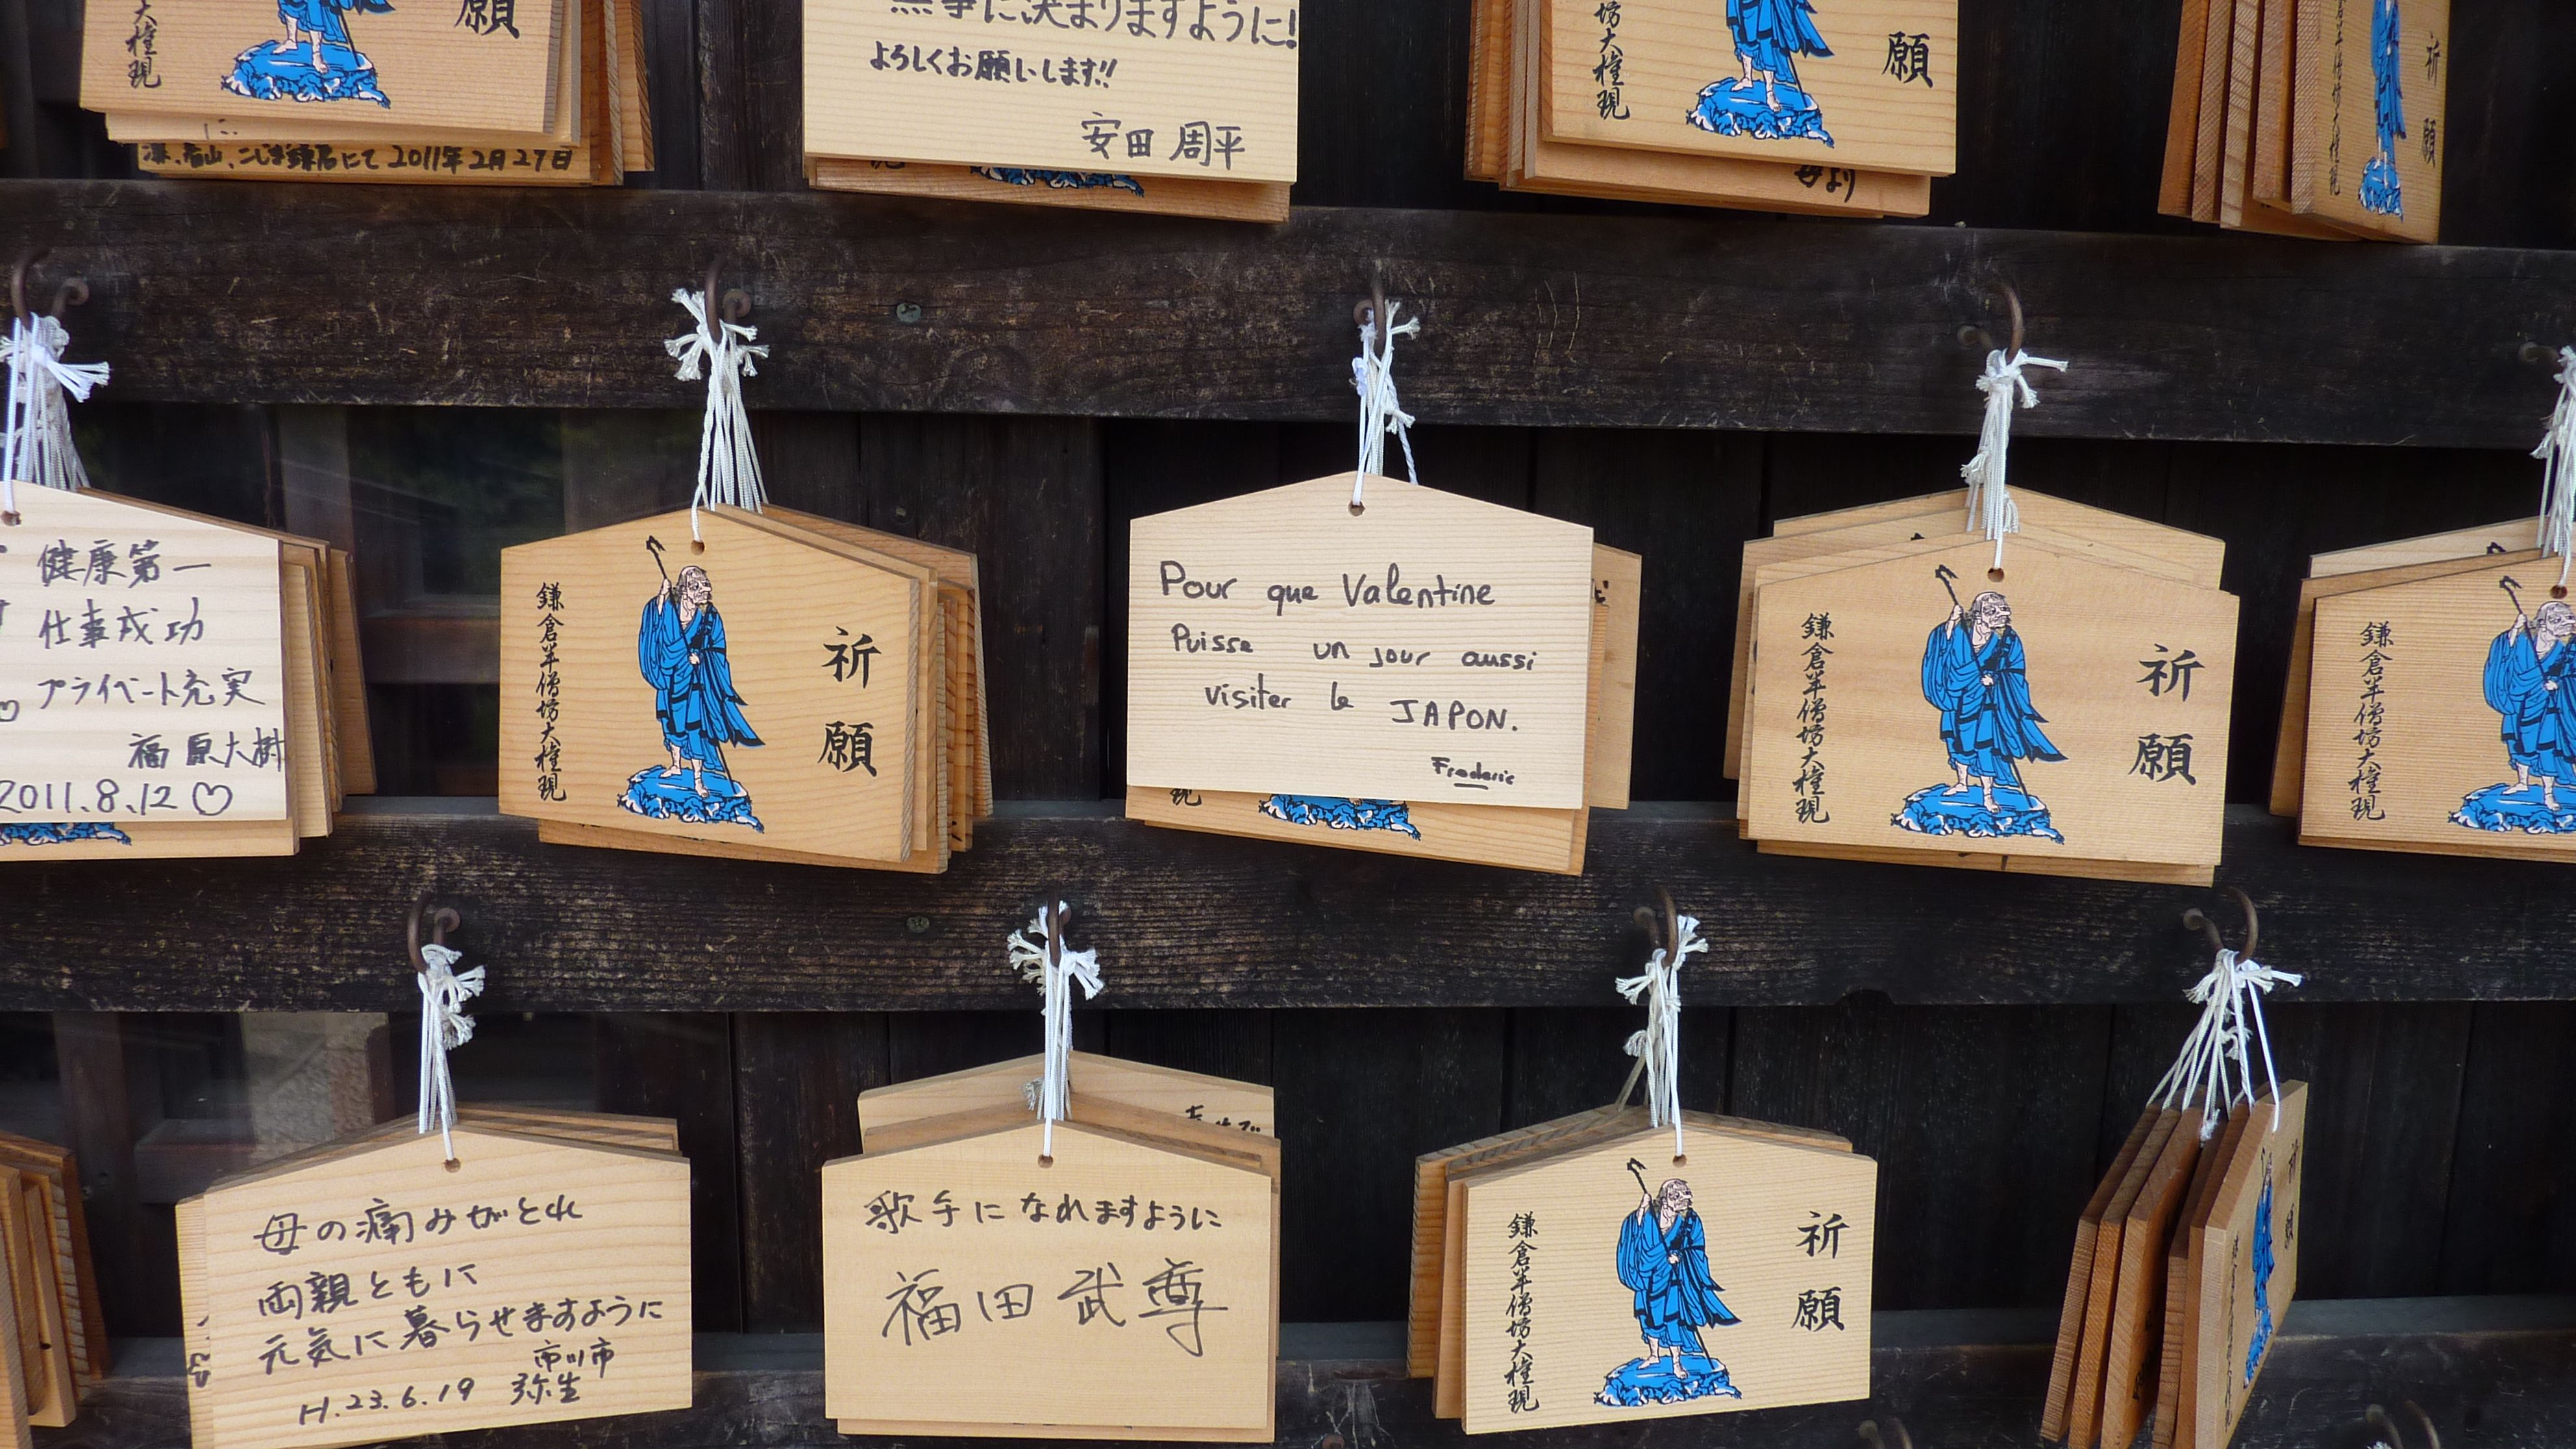 大権現
願
にて 2011年2月27日
無事に決まりますように!
よろしくお願いします!!
安田 周平
坊大権現
願
母より
祈願
健康第一
仕事成功
プライベート充実
福原大樹
2011.8.12♡
鎌倉半僧坊大権現
祈願
Pour que Valentine
Puisse un jour aussi
visiter le JAPON.
Frederic
現
鎌倉半僧坊大権現
祈願
鎌倉半僧坊大権現
母の痛みがとれ
両親ともに
元気に暮らせますように
市川市
H.23.6.19 弥生
歌手になれますように
福田 武尊
鎌倉半僧坊大権現
祈願